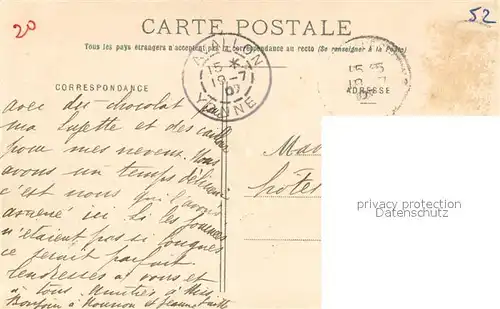 20
52
CARTE POSTALE
Tous les pays étrangers n'acceptent pas la correspondance au recto (Se renseigner à la Poste)
AVALLON
15 *
19-7
07
YONNE
15
19-7
CORRESPONDANCE
ADRESSE
avec du chocolat pour
ma Lucette et des
pour mes neveux. Nous
avons un temps délicieux
c'est nous qui l'avons
amené ici. Si les journées
n'étaient pas si longues
ce serait parfait
tendresses à vous et
à tous. Amitiés à Miss
Bonjour à et Jeannette
hôtes
privacy protection
Datenschutz